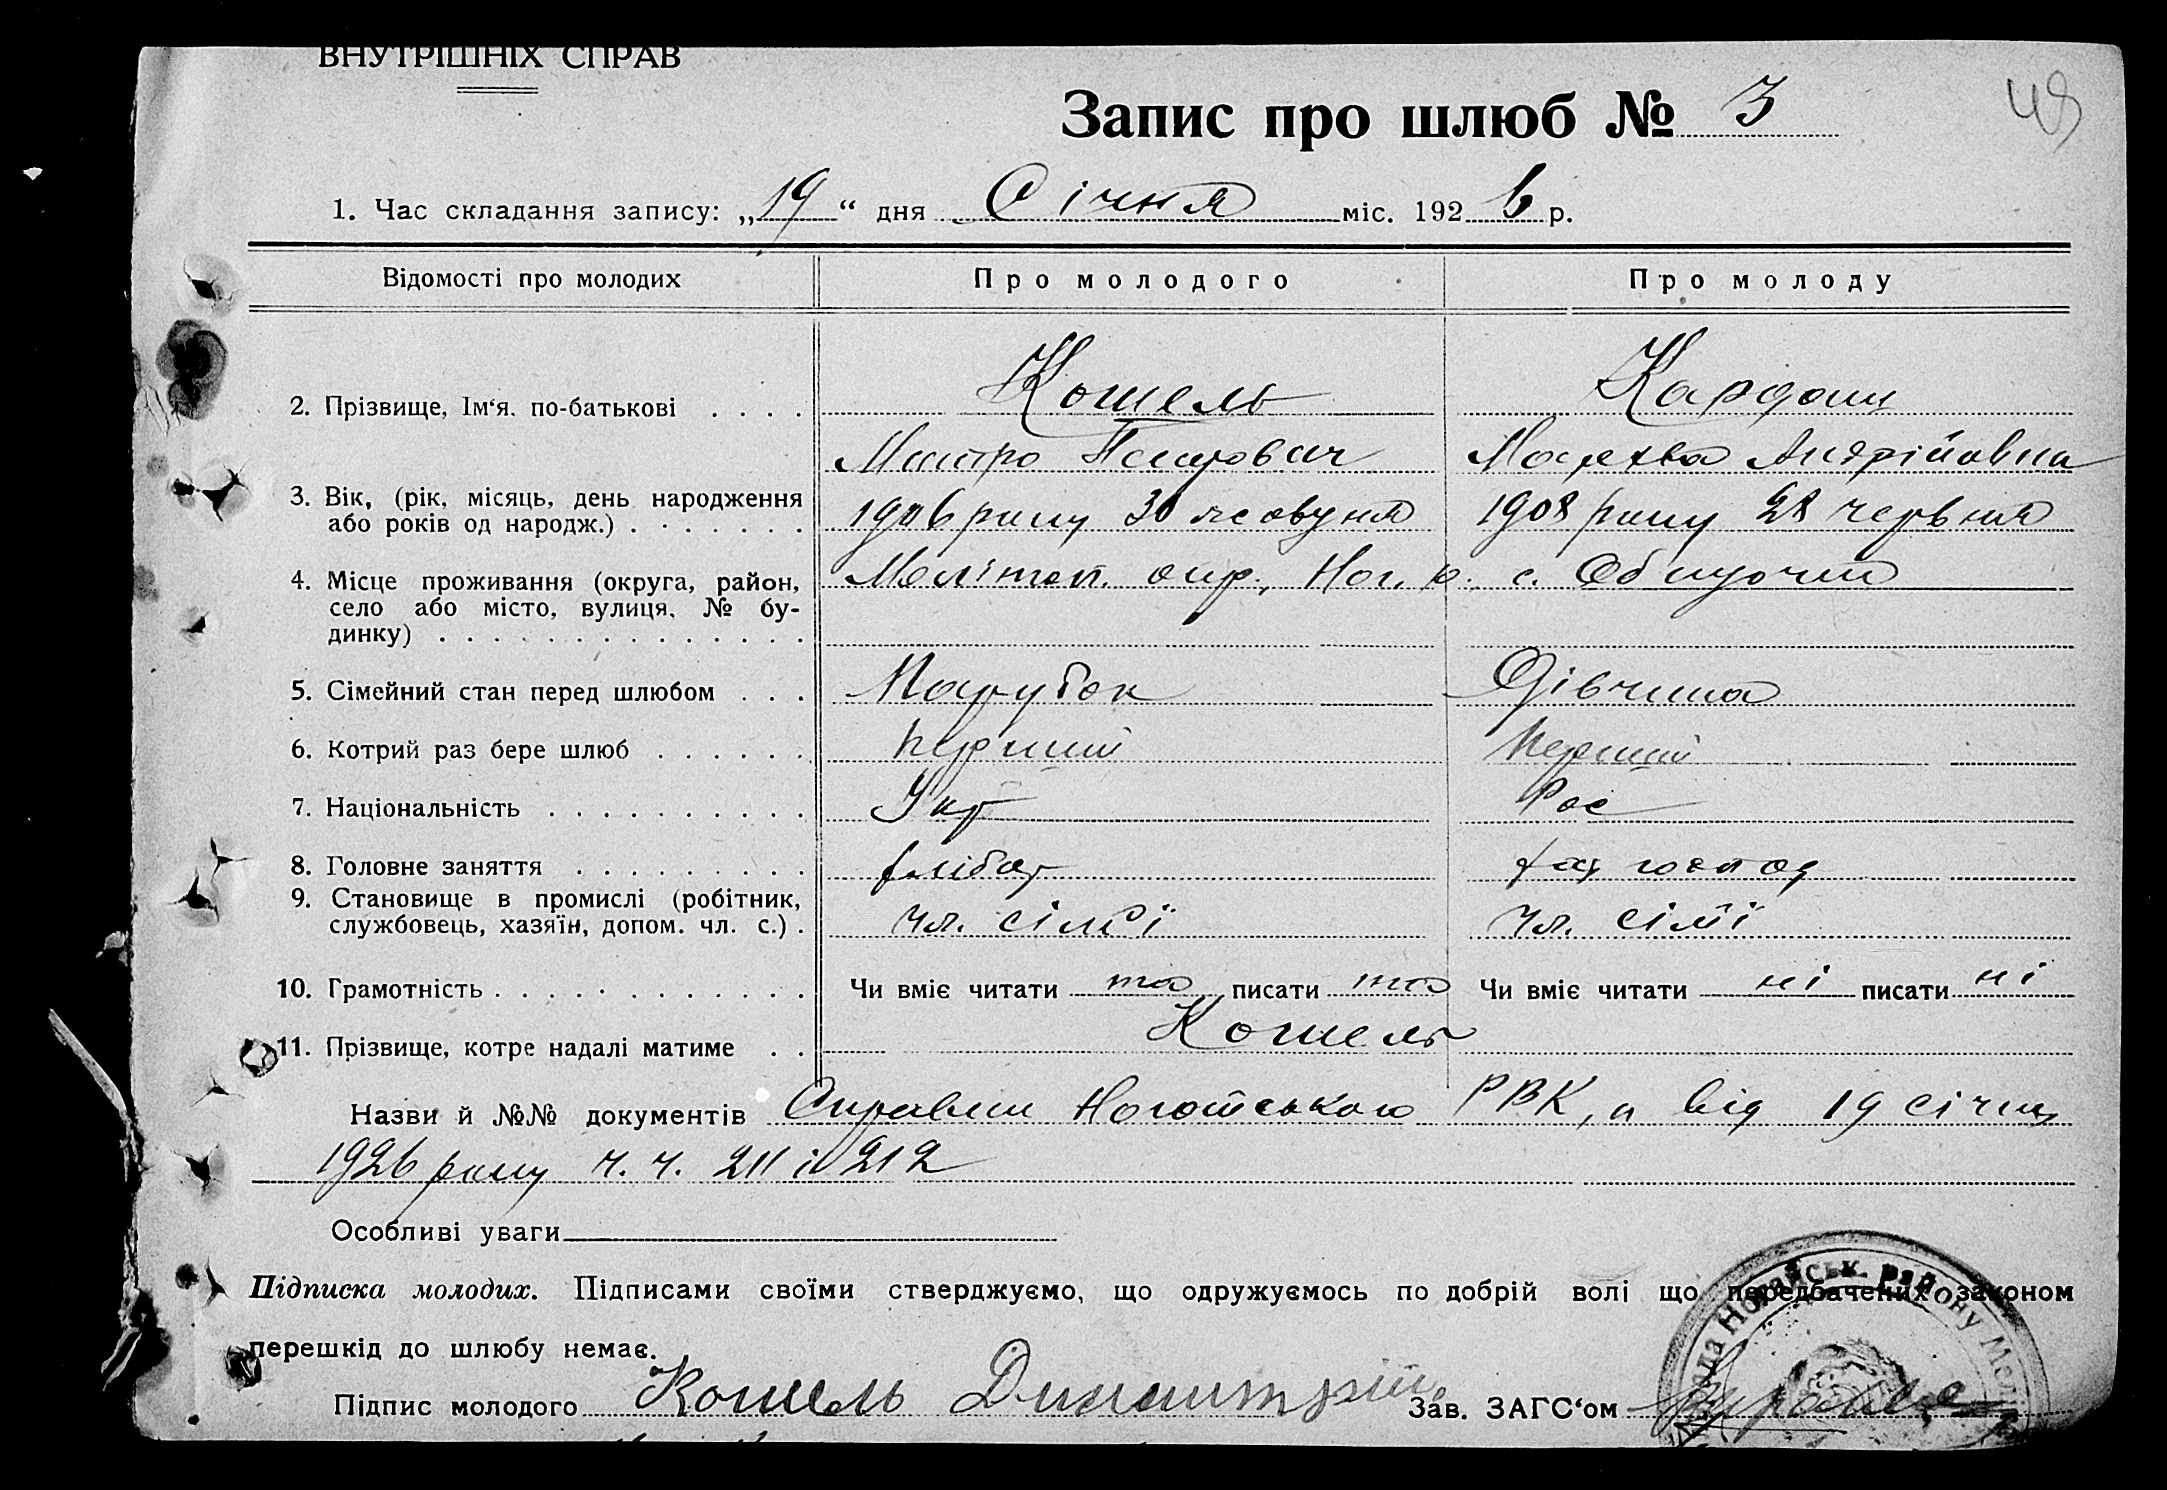 ВНУТРІШНІХ СПРАВ
Запис про шлюб № 3
49
1. Час складання запису: „19“ дня Січня міс. 1926 р.
Відомості про молодих Про молодого Про молоду
2. Прізвище, Ім‘я. по-батькові . . . . Кошель Кардаш
Митро Петрович Мархва Андрійовна
3. Вік, (рік, місяць, день народження
або років од народж.) . . . . . . . 1906 року 30 жовтня 1908 року 28 червня
4. Місце проживання (округа, район, Мелітоп. окр., Ног. р. с. Обиточне
село або місто, вулиця, № бу-
динку) . . . . . . . . . . . . . .
5. Сімейний стан перед шлюбом . . . Парубок Дівчина
6. Котрий раз бере шлюб . . . . . . Перший Перший
7. Національність . . . . . . . . . . Укр Рос
8. Головне заняття . . . . . . . . . хлібор господ
9. Становище в промислі (робітник,
службовець, хазяїн, допом. чл. с.) . Чл. сімї Чл. сімї
10. Грамотність . . . . . . . . . . . . Чи вміє читати та писати та Чи вміє читати ні писати ні
11. Прізвище, котре надалі матиме . . Кошель
Назви й №№ документів Справки Ногайського РВК, а від 19 січня
1926 року ч. ч. 211 і 212
Особливі уваги
Підписка молодих. Підписами своїми стверджуємо, що одружуємось по добрій волі що передбачених законом
перешкід до шлюбу немає.
Підпис молодого Кошель Зав. ЗАГС‘ом
Ногайськ. району